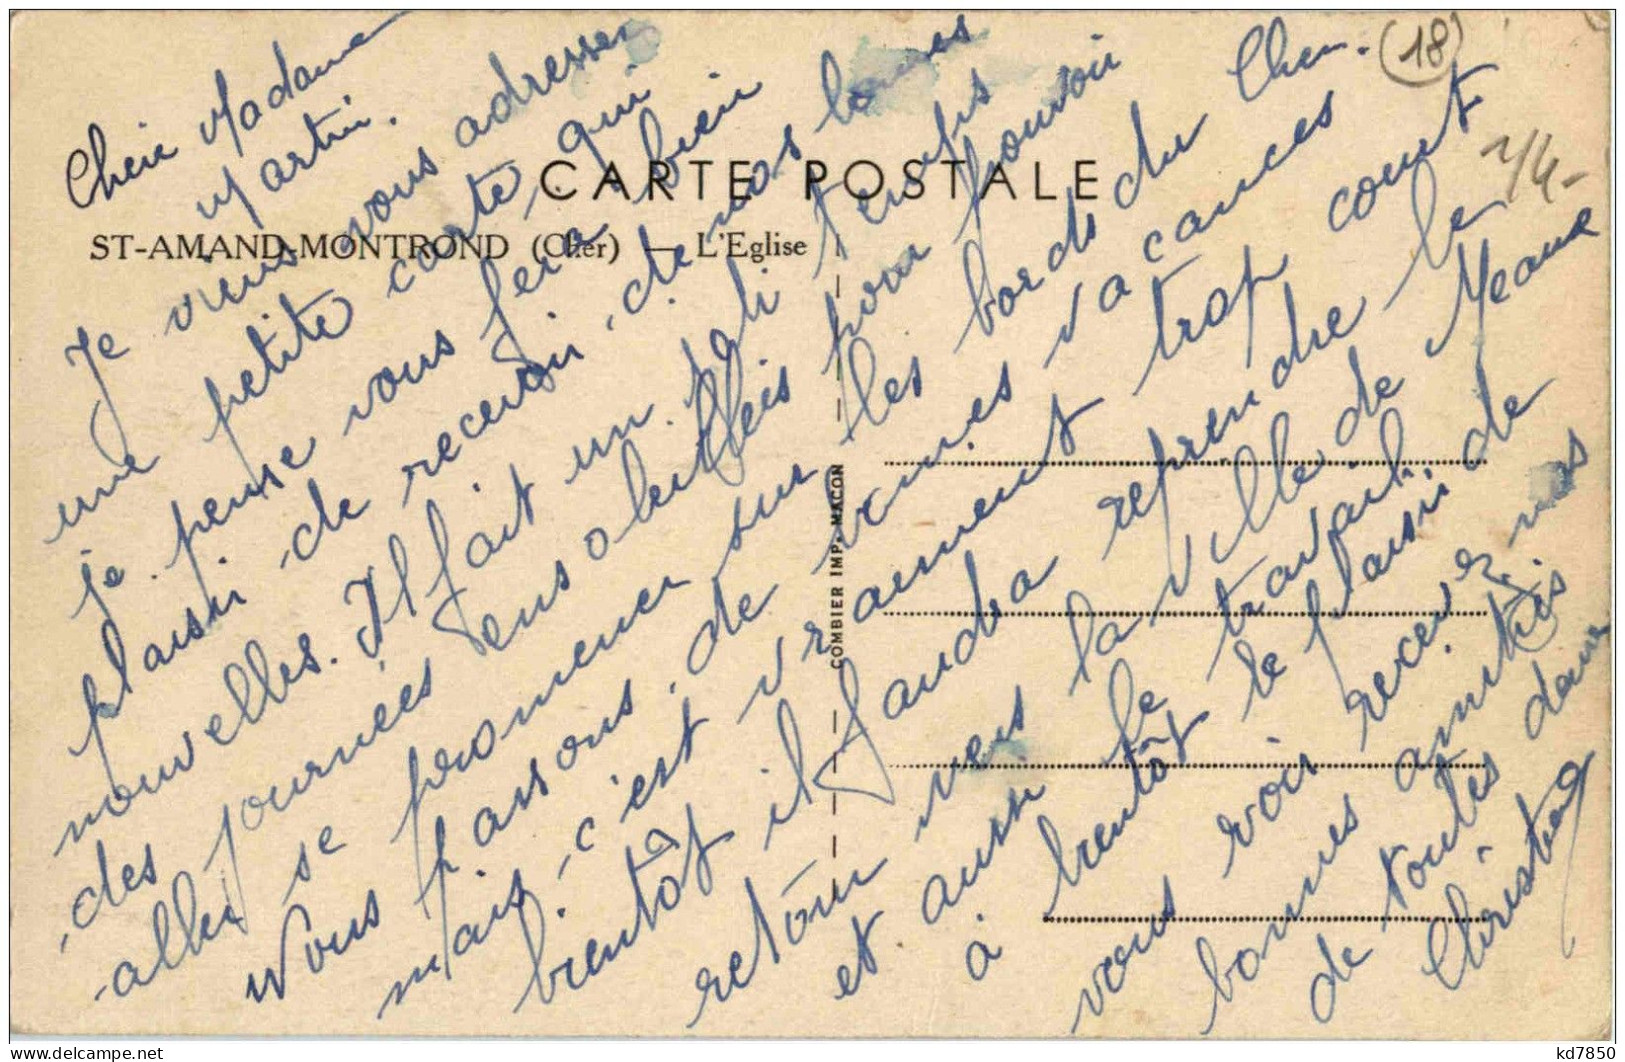 (18)
CARTE POSTALE
ST-AMAND-MONTROND (Cher) — L'Eglise
COMBIER IMP. MACON
Chère Madame
Martin.
Je viens vous adresser
une petite carte qui
je pense vous fera bien
plaisir de recevoir de nos bonnes
nouvelles. Il fait un joli temps
des journées ensoleillées pour pouvoir
aller se promener sur les bords du Cher.
Nous passons de bonnes vacances
mais c'est vraiment trop court
bientôt il faudra reprendre le
retour vers la ville de Meaux
et aussi le travail.
à bientôt le plaisir de
vous voir recevez nos
bonnes amitiés
de toutes deux
Christiane
kd7850